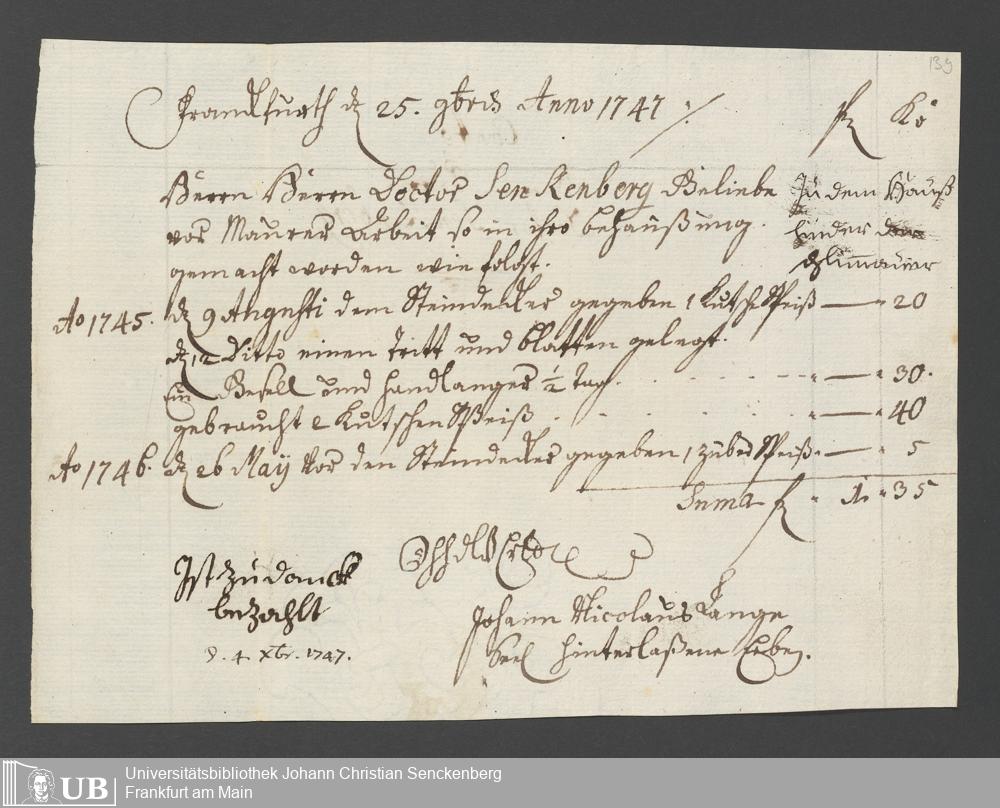 139
Franckfurth d 25. 9bris Anno 1747
fl Xr
Herrn Herrn Doctor Senckenberg Beliebe
vor Maurer Arbeit so in ihro behaußung
gemacht worden wie folgt.
In dem Hauß
hinder der
Ao 1745. d 9 Augusti dem Steindecker gegeben 1 Kutsch Speiß — 20
d 12 Ditto einen Tritt und blatten gelegt.
Ein Gesell und handlanger ½ Tag. — 30.
gebraucht 2 Kutschen Speiß — 40
Ao 1746. d 26 May Vor den Steindecker gegeben 1 Zuber Speiß — 5
Suma fl 1. 35
Ist zu danck
bezahlt
d. 4 Xbr. 1747.
Johann Nicolaus Lange
Seel hinterlaßene Erben.
UB
Universitätsbibliothek Johann Christian Senckenberg
Frankfurt am Main